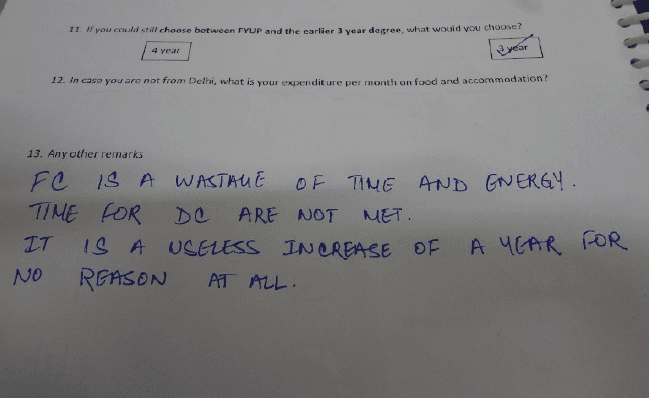 11. If you could still choose between FYUP and the earlier 3 year degree, what would you choose?
4 year 3 year
12. In case you are not from Delhi, what is your expenditure per month on food and accommodation?
13. Any other remarks
FC IS A WASTAGE OF TIME AND ENERGY.
TIME FOR DC ARE NOT MET.
IT IS A USELESS INCREASE OF A YEAR FOR
NO REASON AT ALL.